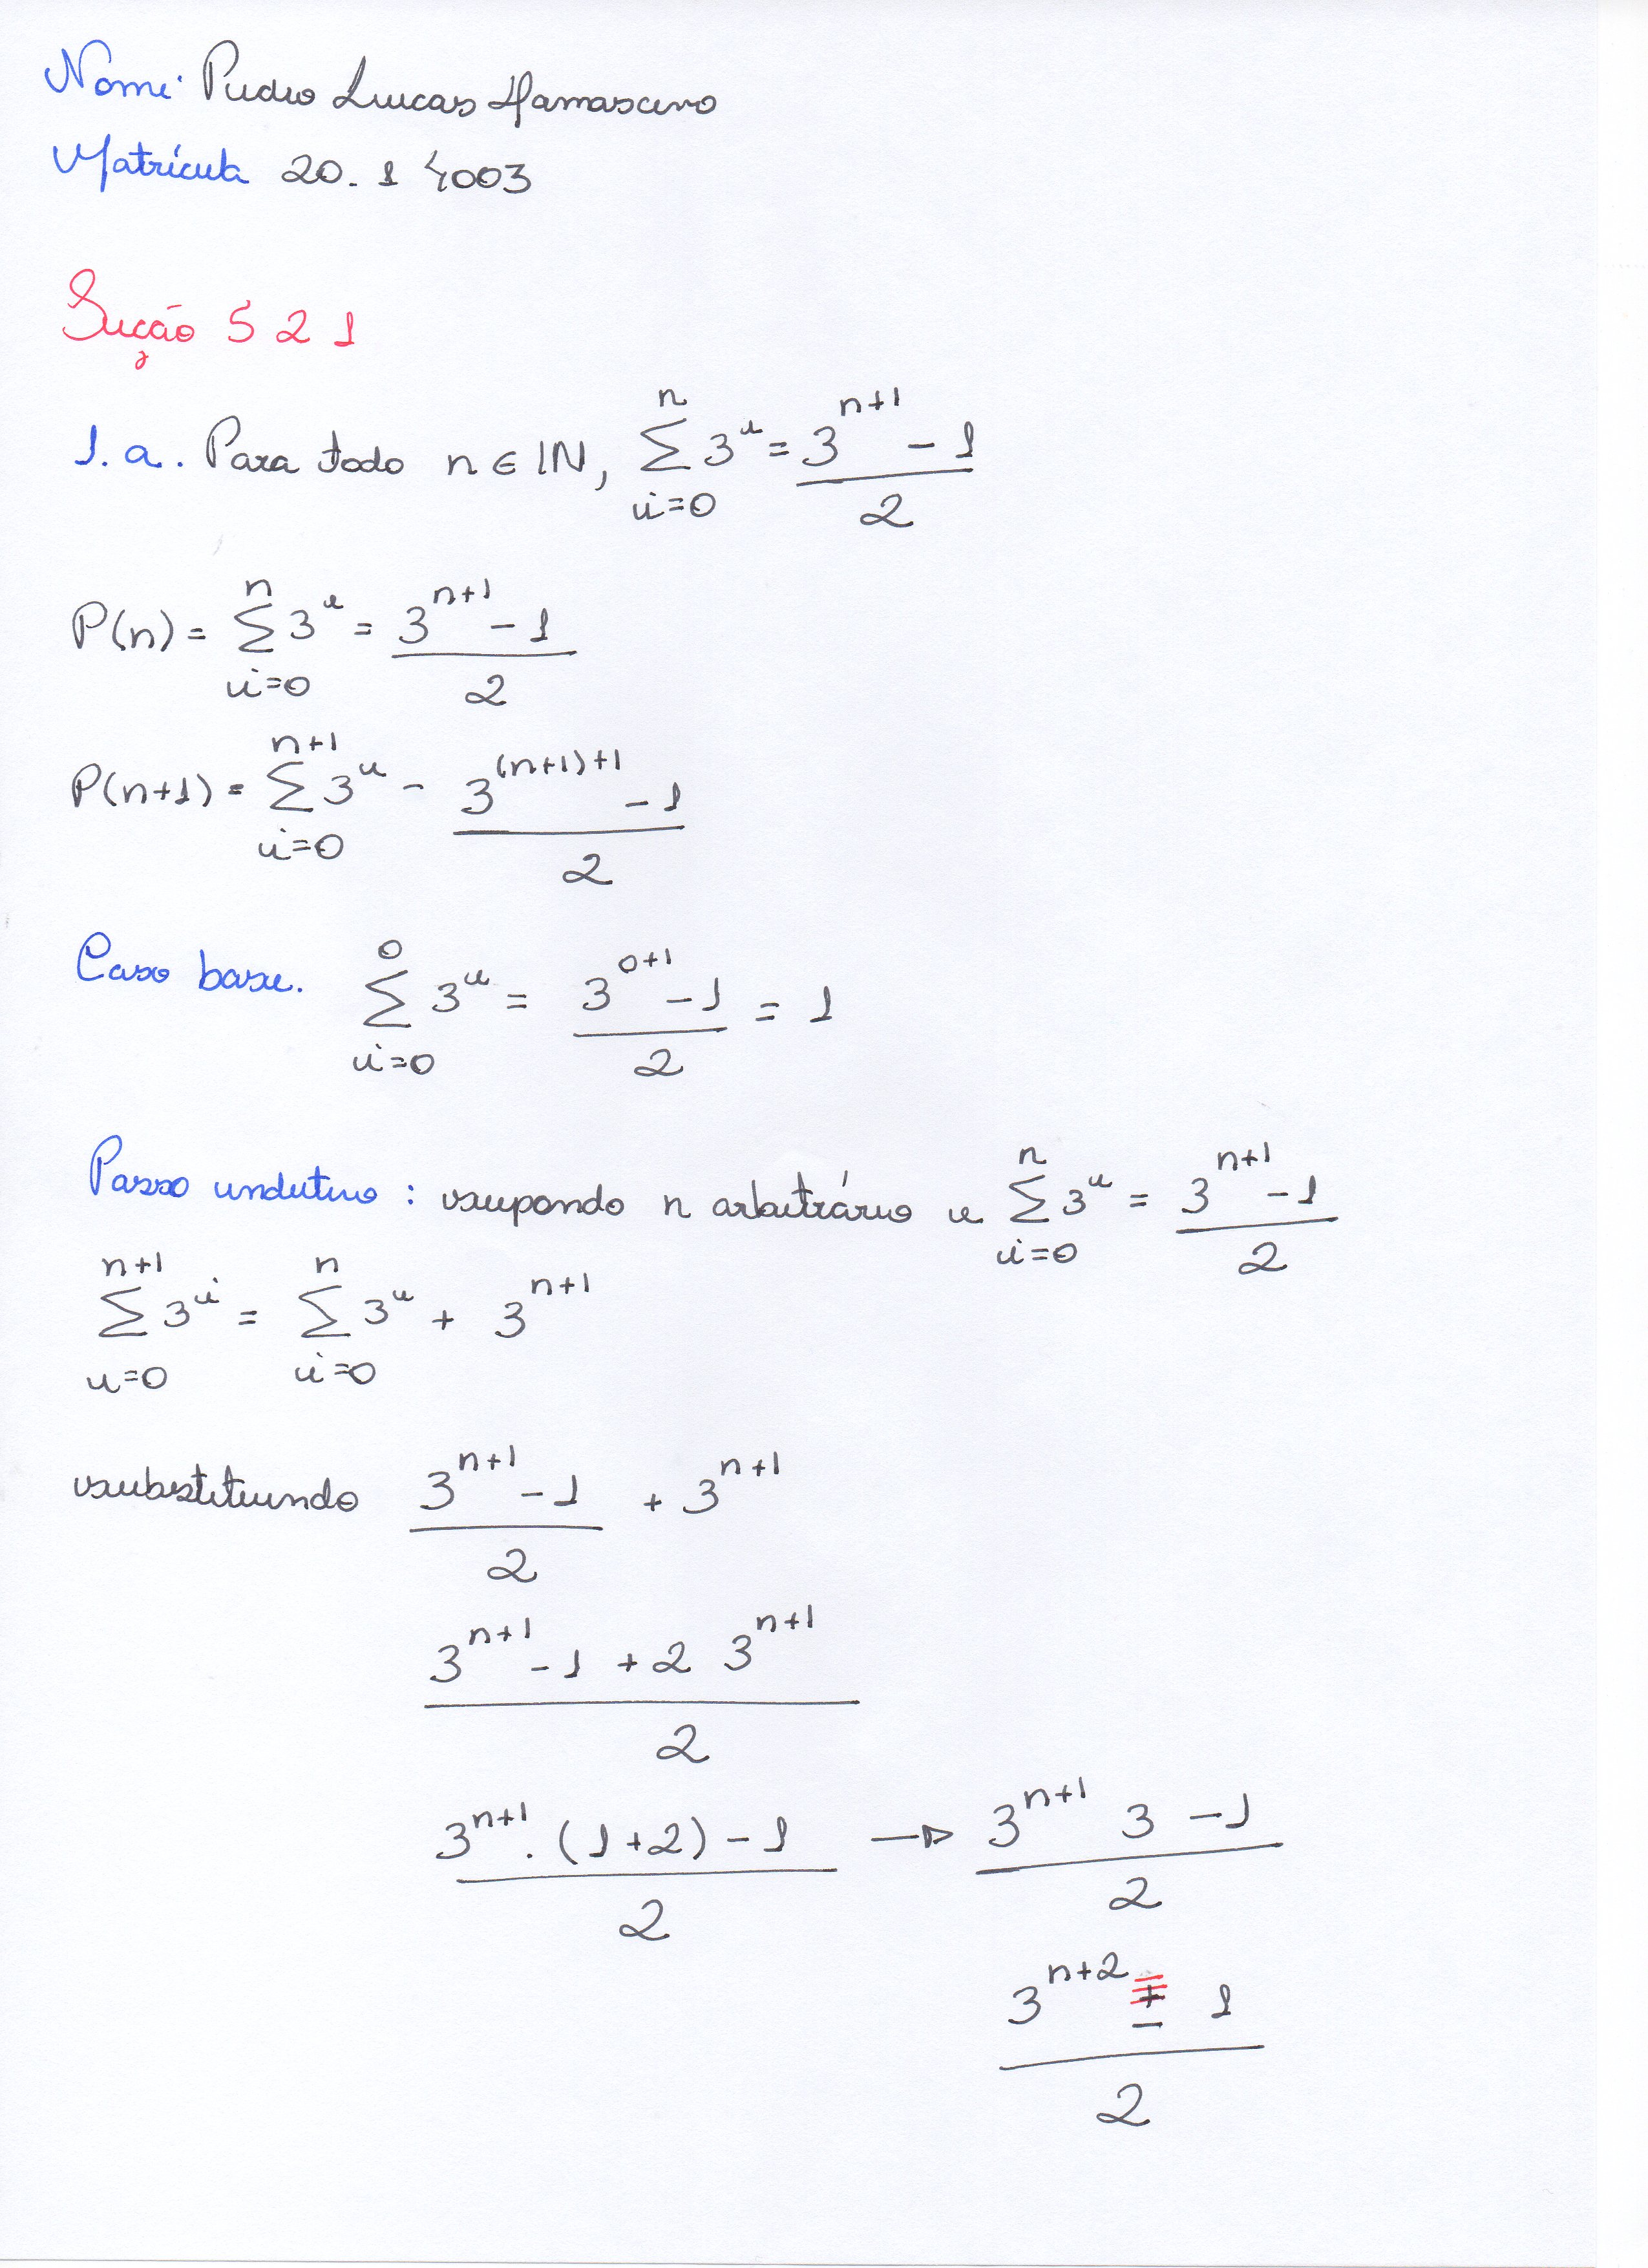 Nome: Pedro Lucas Damasceno
Matrícula 20.1 4003
Secção 5 2 1
1.a. Para todo n ∈ IN, ∑_{i=0}^{n} 3^i = (3^{n+1} - 1)/2
P(n) = ∑_{i=0}^{n} 3^i = (3^{n+1} - 1)/2
P(n+1) = ∑_{i=0}^{n+1} 3^i = (3^{(n+1)+1} - 1)/2
Caso base. ∑_{i=0}^{0} 3^i = (3^{0+1} - 1)/2 = 1
Passo indutivo: supondo n arbitrário e ∑_{i=0}^{n} 3^i = (3^{n+1} - 1)/2
∑_{i=0}^{n+1} 3^i = ∑_{i=0}^{n} 3^i + 3^{n+1}
substituindo (3^{n+1} - 1)/2 + 3^{n+1}
(3^{n+1} - 1 + 2 3^{n+1})/2
(3^{n+1} . (1+2) - 1)/2 → (3^{n+1} 3 - 1)/2
(3^{n+2} - 1)/2